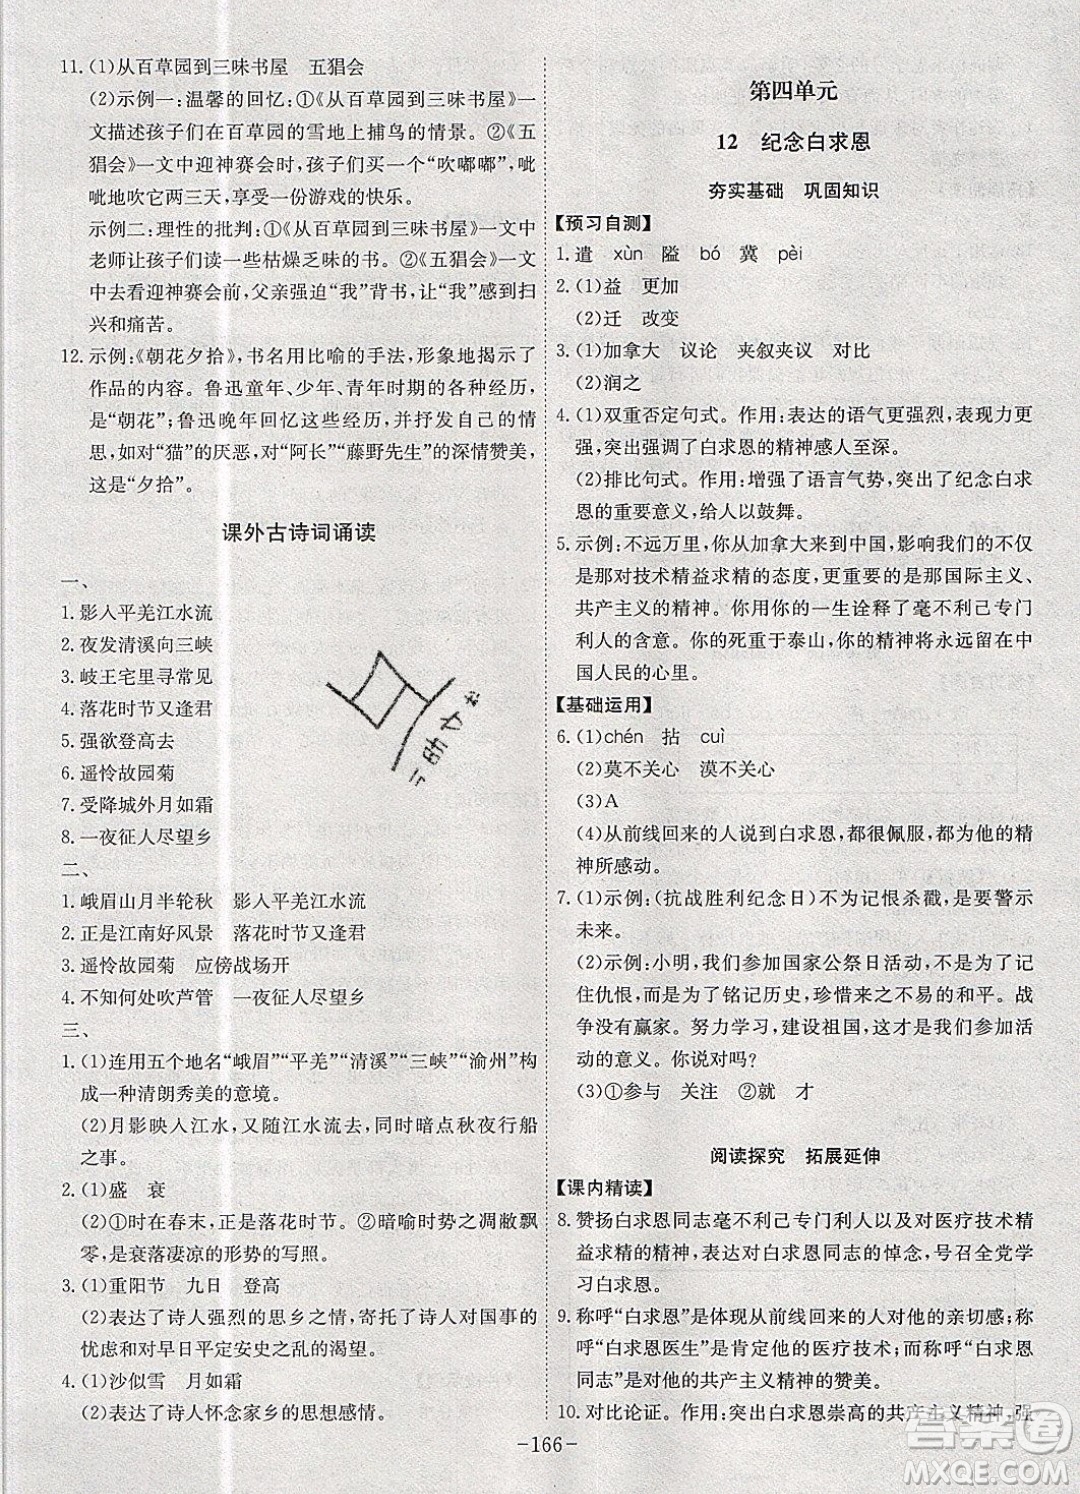 11. (1)从百草园到三味书屋　五猖会
(2)示例一:温馨的回忆:①《从百草园到三味书屋》一
文描述孩子们在百草园的雪地上捕鸟的情景。②《五
猖会》一文中迎神赛会时,孩子们一个“吹嘟嘟”,吡
吡地吹它两三天,享受一份游戏的快乐。
示例二:理性的批判:①《从百草园到三味书屋》一文中
老师让孩子们读一些枯燥乏味的书。②《五猖会》一文
中去看迎神赛会前,父亲强迫“我”背书,让“我”感到扫
兴和痛苦。
12. 示例:《朝花夕拾》,书名用比喻的手法,形象地揭示了
作品的内容。鲁迅童年、少年、青年时期的各种经历,
是“朝花”;鲁迅晚年回忆这些经历,并抒发自己的情
思,如对“猫”的厌恶,对“阿长”“藤野先生”的深情赞美,
这是“夕拾”。
课外古诗词诵读
一、
1. 影入平羌江水流
2. 夜发清溪向三峡
3. 岐王宅里寻常见
4. 落花时节又逢君
5. 强欲登高去
6. 遥怜故园菊
7. 受降城外月如霜
8. 一夜征人尽望乡
二、
1. 峨眉山月半轮秋　影入平羌江水流
2. 正是江南好风景　落花时节又逢君
3. 遥怜故园菊　应傍战场开
4. 不知何处吹芦管　一夜征人尽望乡
三、
1. (1)连用五个地名“峨眉”“平羌”“清溪”“三峡”“渝州”构
成一种清朗秀美的意境。
(2)月影映入江水,又随江水流去,同时暗点秋夜行船
之事。
2. (1)盛　衰
(2)①时在春末,正是落花时节。②暗喻时势之凋敝飘
零,是衰落凄凉的形势的写照。
3. (1)重阳节　九日　登高
(2)表达了诗人强烈的思乡之情,寄托了诗人对国事的
忧虑和对早日平定安史之乱的渴望。
4. (1)沙似雪　月如霜
(2)表达了诗人怀念家乡的思想感情。
第四单元
12　纪念白求恩
夯实基础　巩固知识
【预习自测】
1. 遣　xùn　隘　bó　冀　pèi
2. (1)益　更加
(2)迁　改变
3. (1)加拿大　议论　夹叙夹议　对比
(2)润之
4. (1)双重否定句式。作用:表达的语气更强烈,表现力更
强,突出强调了白求恩的精神感人至深。
(2)排比句式。作用:增强了语言气势,突出了纪念白求
恩的重要意义,给人以鼓舞。
5. 示例:不远万里,你从加拿大来到中国,影响我们的不仅
是那对技术精益求精的态度,更是你的那种国际主义、
共产主义的精神。你用你的一生诠释了毫不利己专门
利人的含意。你的死重于泰山,你的精神将永远留在中
国人民的心里。
【基础运用】
6. (1)chén　拈　cuì
(2)莫不关心　漠不关心
(3)A
(4)从前线回来的人说到白求恩,都很佩服,都为他的精
神所感动。
7. (1)示例:(抗战胜利纪念日)不为记恨杀戮,是要警示
未来。
(2)示例:小明,我们参加国家公祭日活动,不是为了记
住仇恨,而是为了铭记历史,珍惜来之不易的和平。战
争没有赢家。努力学习,建设祖国,这才是我们参加活
动的意义。你说对吗?
(3)①参与　关注　②就　才
阅读探究　拓展延伸
【课内精读】
8. 赞扬白求恩同志毫不利己专门利人以及对医疗技术精
益求精的精神,表达对白求恩同志的悼念,号召全党学
习白求恩。
9. 称呼“白求恩”是体现从前线回来的人对他的亲切感;称
呼“白求恩医生”是肯定他的医疗技术;而称呼“白求恩
同志”是对他的共产主义精神的赞美。
10. 对比论证。作用:突出白求恩崇高的共产主义精神,强
-166-
答案圈
MXQE.COM